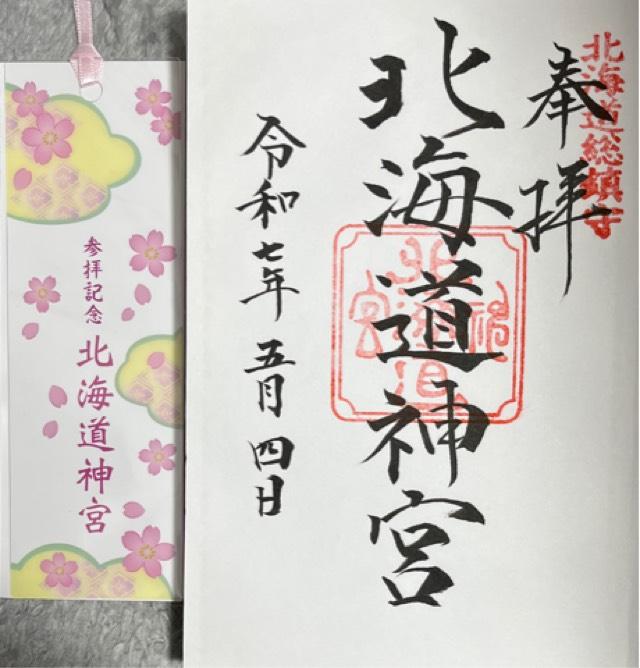 北海道総鎮守
奉拝
北海道神宮
令和七年五月四日
北海道神宮
参拝記念
北海道神宮